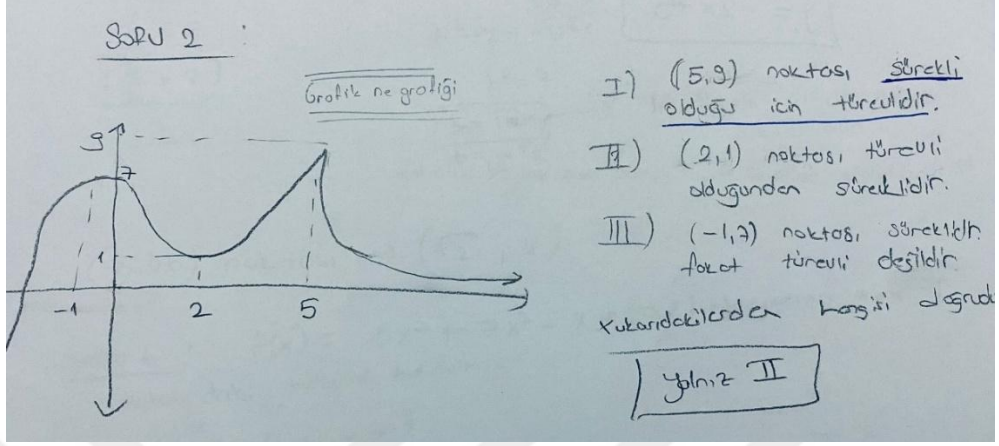 SORU 2 :
Grafik ne grafiği
9
7
1
-1
2
5
I) (5,9) noktası sürekli
olduğu için türevlidir.
II) (2,1) noktası türevli
olduğundan süreklidir.
III) (-1,7) noktası süreklidir
fakat türevli değildir.
Yukarıdakilerden hangisi doğrudu
Yalnız II